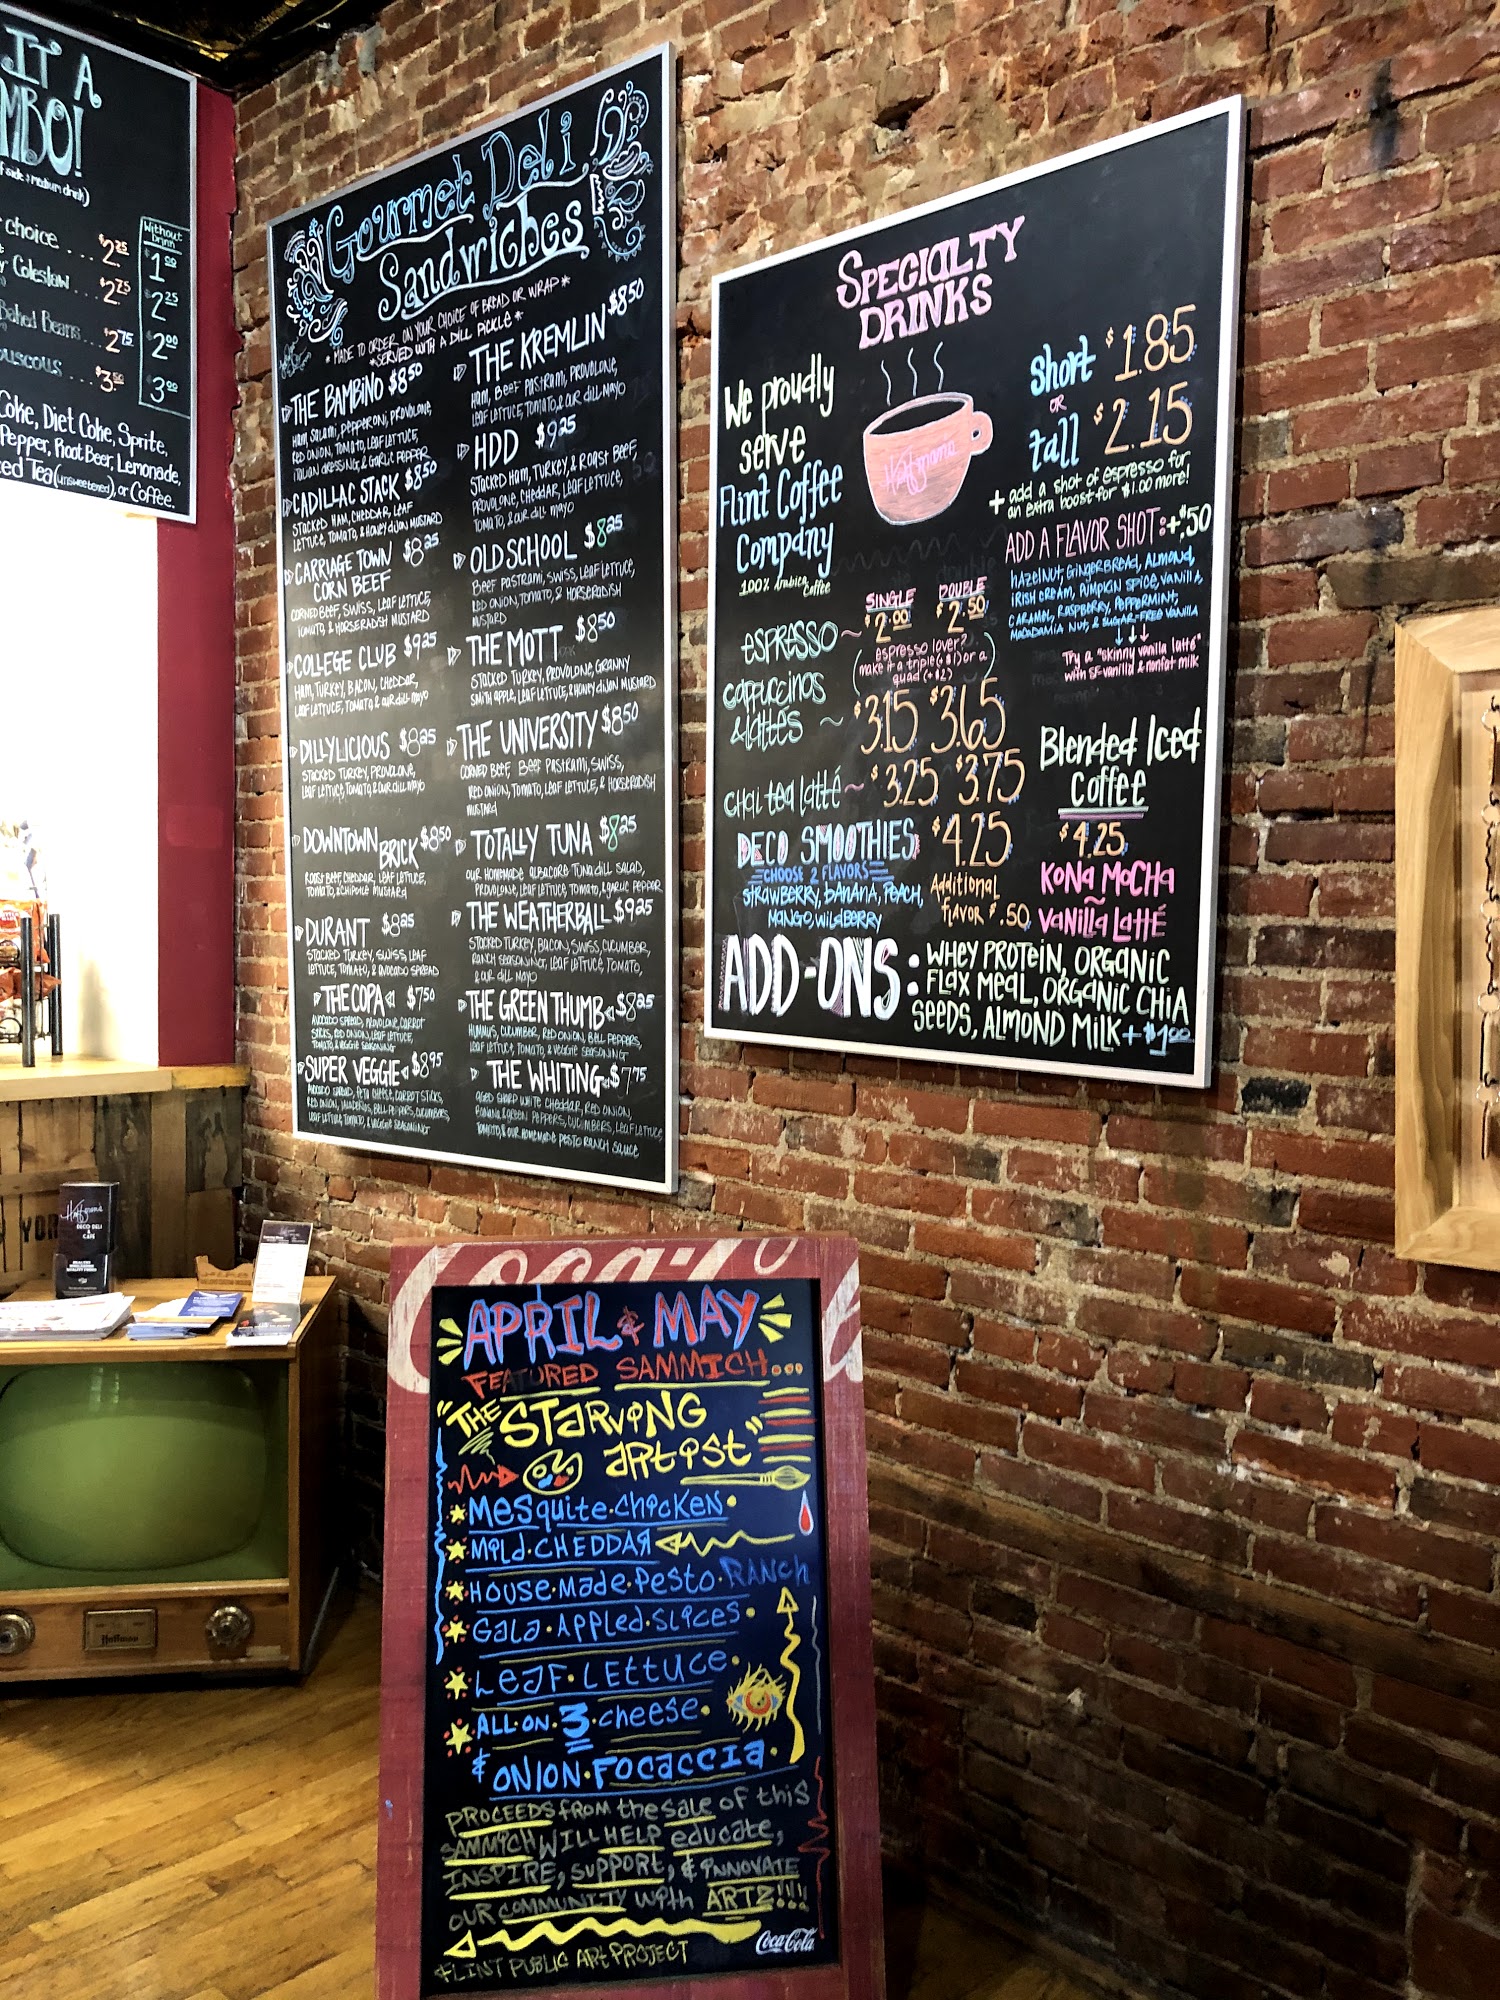 IT A
MBO!
f side & medium drink)
Without
Drink
choice . . . $2.25 $1.50
Coleslaw . . . $2.75 $2.25
Baked Beans . . . . $2.75 $2.00
ouscous . . . . $3.50 $3.00
Coke, Diet Coke, Sprite,
Pepper, Root Beer, Lemonade,
ced Tea (unsweetened), or Coffee.
Gourmet Deli
Sandwiches
*MADE TO ORDER ON YOUR CHOICE OF BREAD OR WRAP*
*SERVED WITH A DILL PICKLE*
THE BAMBINO $8.50
HAM, SALAMI, PEPPERONI, PROVOLONE,
RED ONION, TOMATO, LEAF LETTUCE,
ITALIAN DRESSING, & GARLIC PEPPER
CADILLAC STACK $8.50
STACKED HAM, CHEDDAR, LEAF
LETTUCE, TOMATO, & HONEY DIJON MUSTARD
CARRIAGE TOWN $8.25
CORN BEEF
CORNED BEEF, SWISS, LEAF LETTUCE,
TOMATO, & HORSERADISH MUSTARD
COLLEGE CLUB $9.25
HAM, TURKEY, BACON, CHEDDAR,
LEAF LETTUCE, TOMATO & OUR DILL MAYO
DILLYLICIOUS $8.25
STACKED TURKEY, PROVOLONE,
LEAF LETTUCE, TOMATO, & OUR DILL MAYO
DOWNTOWN BRICK $8.50
ROAST BEEF, CHEDDAR, LEAF LETTUCE,
TOMATO, & CHIPOTLE MUSTARD
DURANT $8.25
STACKED TURKEY, SWISS, LEAF
LETTUCE, TOMATO, & AVOCADO SPREAD
THE COPA $7.50
AVOCADO SPREAD, PROVOLONE, CARROT
STICKS, RED ONION, LEAF LETTUCE,
TOMATO, & VEGGIE SEASONING
SUPER VEGGIE $8.95
AVOCADO SPREAD, FETA CHEESE, CARROT STICKS,
RED ONION, JALAPEÑOS, BELL PEPPERS, CUCUMBERS,
LEAF LETTUCE, TOMATO, & VEGGIE SEASONING
THE KREMLIN $8.50
HAM, BEEF PASTRAMI, PROVOLONE,
LEAF LETTUCE, TOMATO, & OUR DILL MAYO
HDD $9.25
STACKED HAM, TURKEY, & ROAST BEEF,
PROVOLONE, CHEDDAR, LEAF LETTUCE,
TOMATO, & OUR DILL MAYO
OLD SCHOOL $8.25
BEEF PASTRAMI, SWISS, LEAF LETTUCE,
RED ONION, TOMATO, & HORSERADISH
MUSTARD
THE MOTT $8.50
STACKED TURKEY, PROVOLONE, GRANNY
SMITH APPLE, LEAF LETTUCE, & HONEY DIJON MUSTARD
THE UNIVERSITY $8.50
CORNED BEEF, BEEF PASTRAMI, SWISS,
RED ONION, TOMATO, LEAF LETTUCE, & HORSERADISH
MUSTARD
TOTALLY TUNA $8.25
OUR HOMEMADE ALBACORE TUNA DILL SALAD,
PROVOLONE, LEAF LETTUCE, TOMATO, & GARLIC PEPPER
THE WEATHERBALL $9.25
STACKED TURKEY, BACON, SWISS, CUCUMBER,
RANCH SEASONING, LEAF LETTUCE, TOMATO,
& OUR DILL MAYO
THE GREEN THUMB $8.25
HUMMUS, CUCUMBER, RED ONION, BELL PEPPERS,
LEAF LETTUCE, TOMATO, & VEGGIE SEASONING
THE WHITING $7.75
AGED SHARP WHITE CHEDDAR, RED ONION,
BANANA PEPPERS, CUCUMBERS, LEAF LETTUCE,
TOMATO, & OUR HOMEMADE PESTO RANCH SAUCE
SPECIALTY
DRINKS
We proudly
serve
Flint Coffee
Company
100% Arabica Coffee
Hoffman's
short $1.85
OR
tall $2.15
+ add a shot of espresso for
an extra boost for $1.00 more!
ADD A FLAVOR SHOT: +$.50
HAZELNUT, GINGERBREAD, ALMOND,
IRISH CREAM, PUMPKIN SPICE, VANILLA,
CARAMEL, RASPBERRY, PEPPERMINT,
MACADAMIA NUT, & SUGAR-FREE VANILLA
Try a "skinny vanilla latté"
with SF vanilla & nonfat milk
SINGLE DOUBLE
ESPRESSO ~ $2.00 $2.50
(espresso lover?
make it a triple (+$1) or a
quad (+$2))
cappuccinos
& lattés ~ $3.15 $3.65
chai tea latté ~ $3.25 $3.75
DECO SMOOTHIES $4.25
CHOOSE 2 FLAVORS
STRAWBERRY, BANANA, PEACH,
MANGO, WILDBERRY
Additional
flavor $.50
Blended Iced
Coffee
$4.25
KONA MOCHA
~
VANILLA LATTÉ
ADD-ONS: WHEY PROTEIN, ORGANIC
FLAX MEAL, ORGANIC CHIA
SEEDS, ALMOND MILK +$1.00
YOR
Hoffman's
DECO DELI
&
CAFÉ
Hoffman
Coca-Cola
APRIL & MAY
FEATURED SAMMICH...
"THE STARVING
ARTIST"
MESQUITE CHICKEN
MILD CHEDDAR
HOUSE MADE PESTO RANCH
GALA APPLED SLICES
LEAF LETTUCE
ALL ON 3 CHEESE
& ONION FOCACCIA
PROCEEDS FROM the SALE OF this
SAMMICH WILL HELP educate,
INSPIRE, SUPPORT, & INNOVATE
OUR COMMUNITY with ARTZ!!!!
FLINT PUBLIC ART PROJECT
Coca-Cola